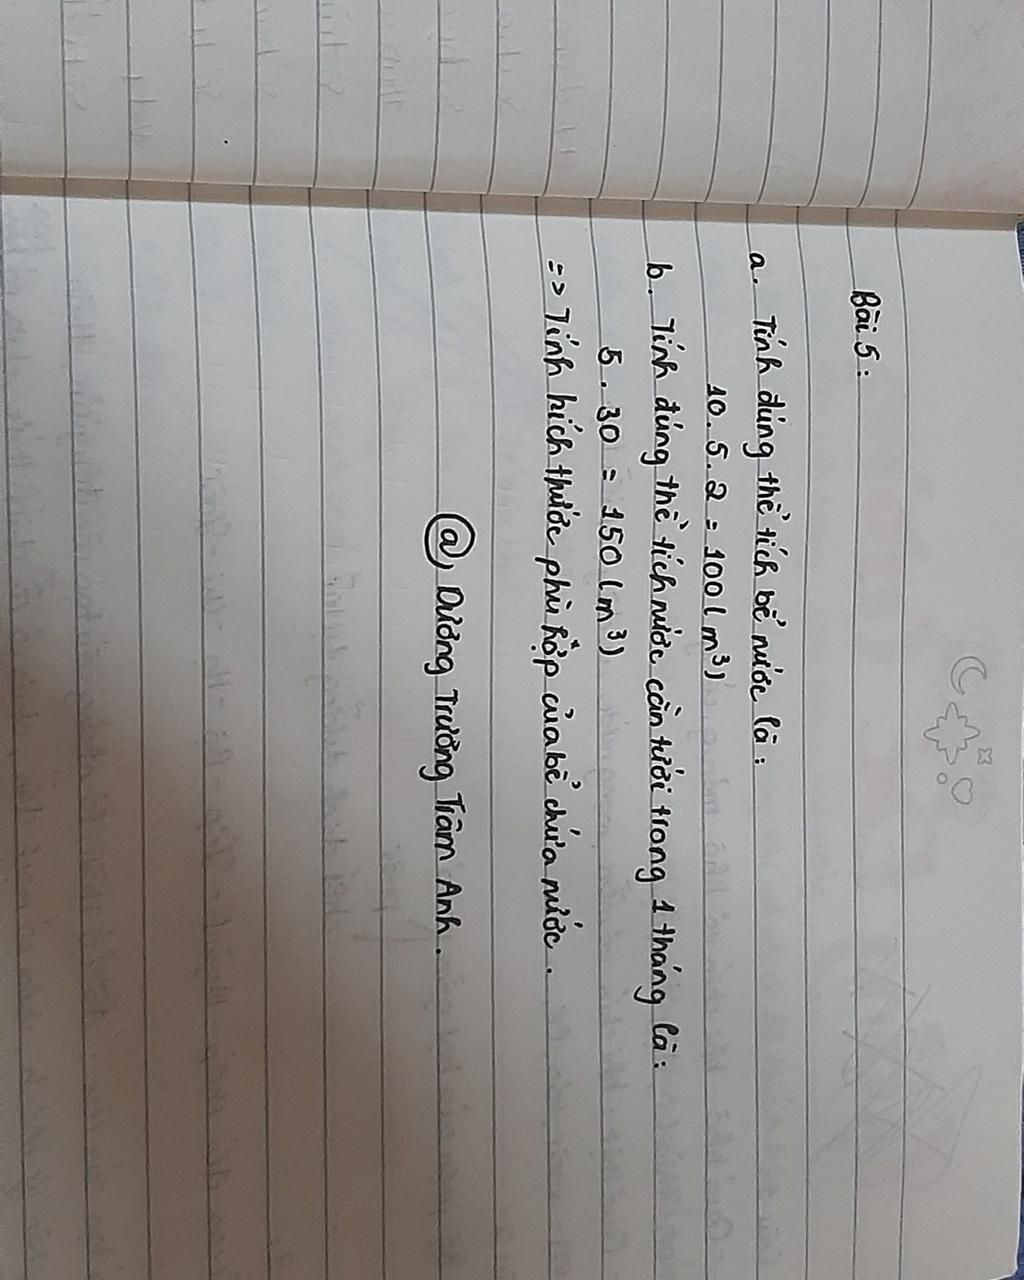 Bài 5:
a. Tính đúng thể tích bể nước là:
10.5.2 = 100 (m³)
b. Tính đúng thể tích nước cần tưới trong 1 tháng là:
5.30 = 150 (m³)
=> Tính kích thước phù hợp của bể chứa nước.
@, Dương Trương Trâm Anh.